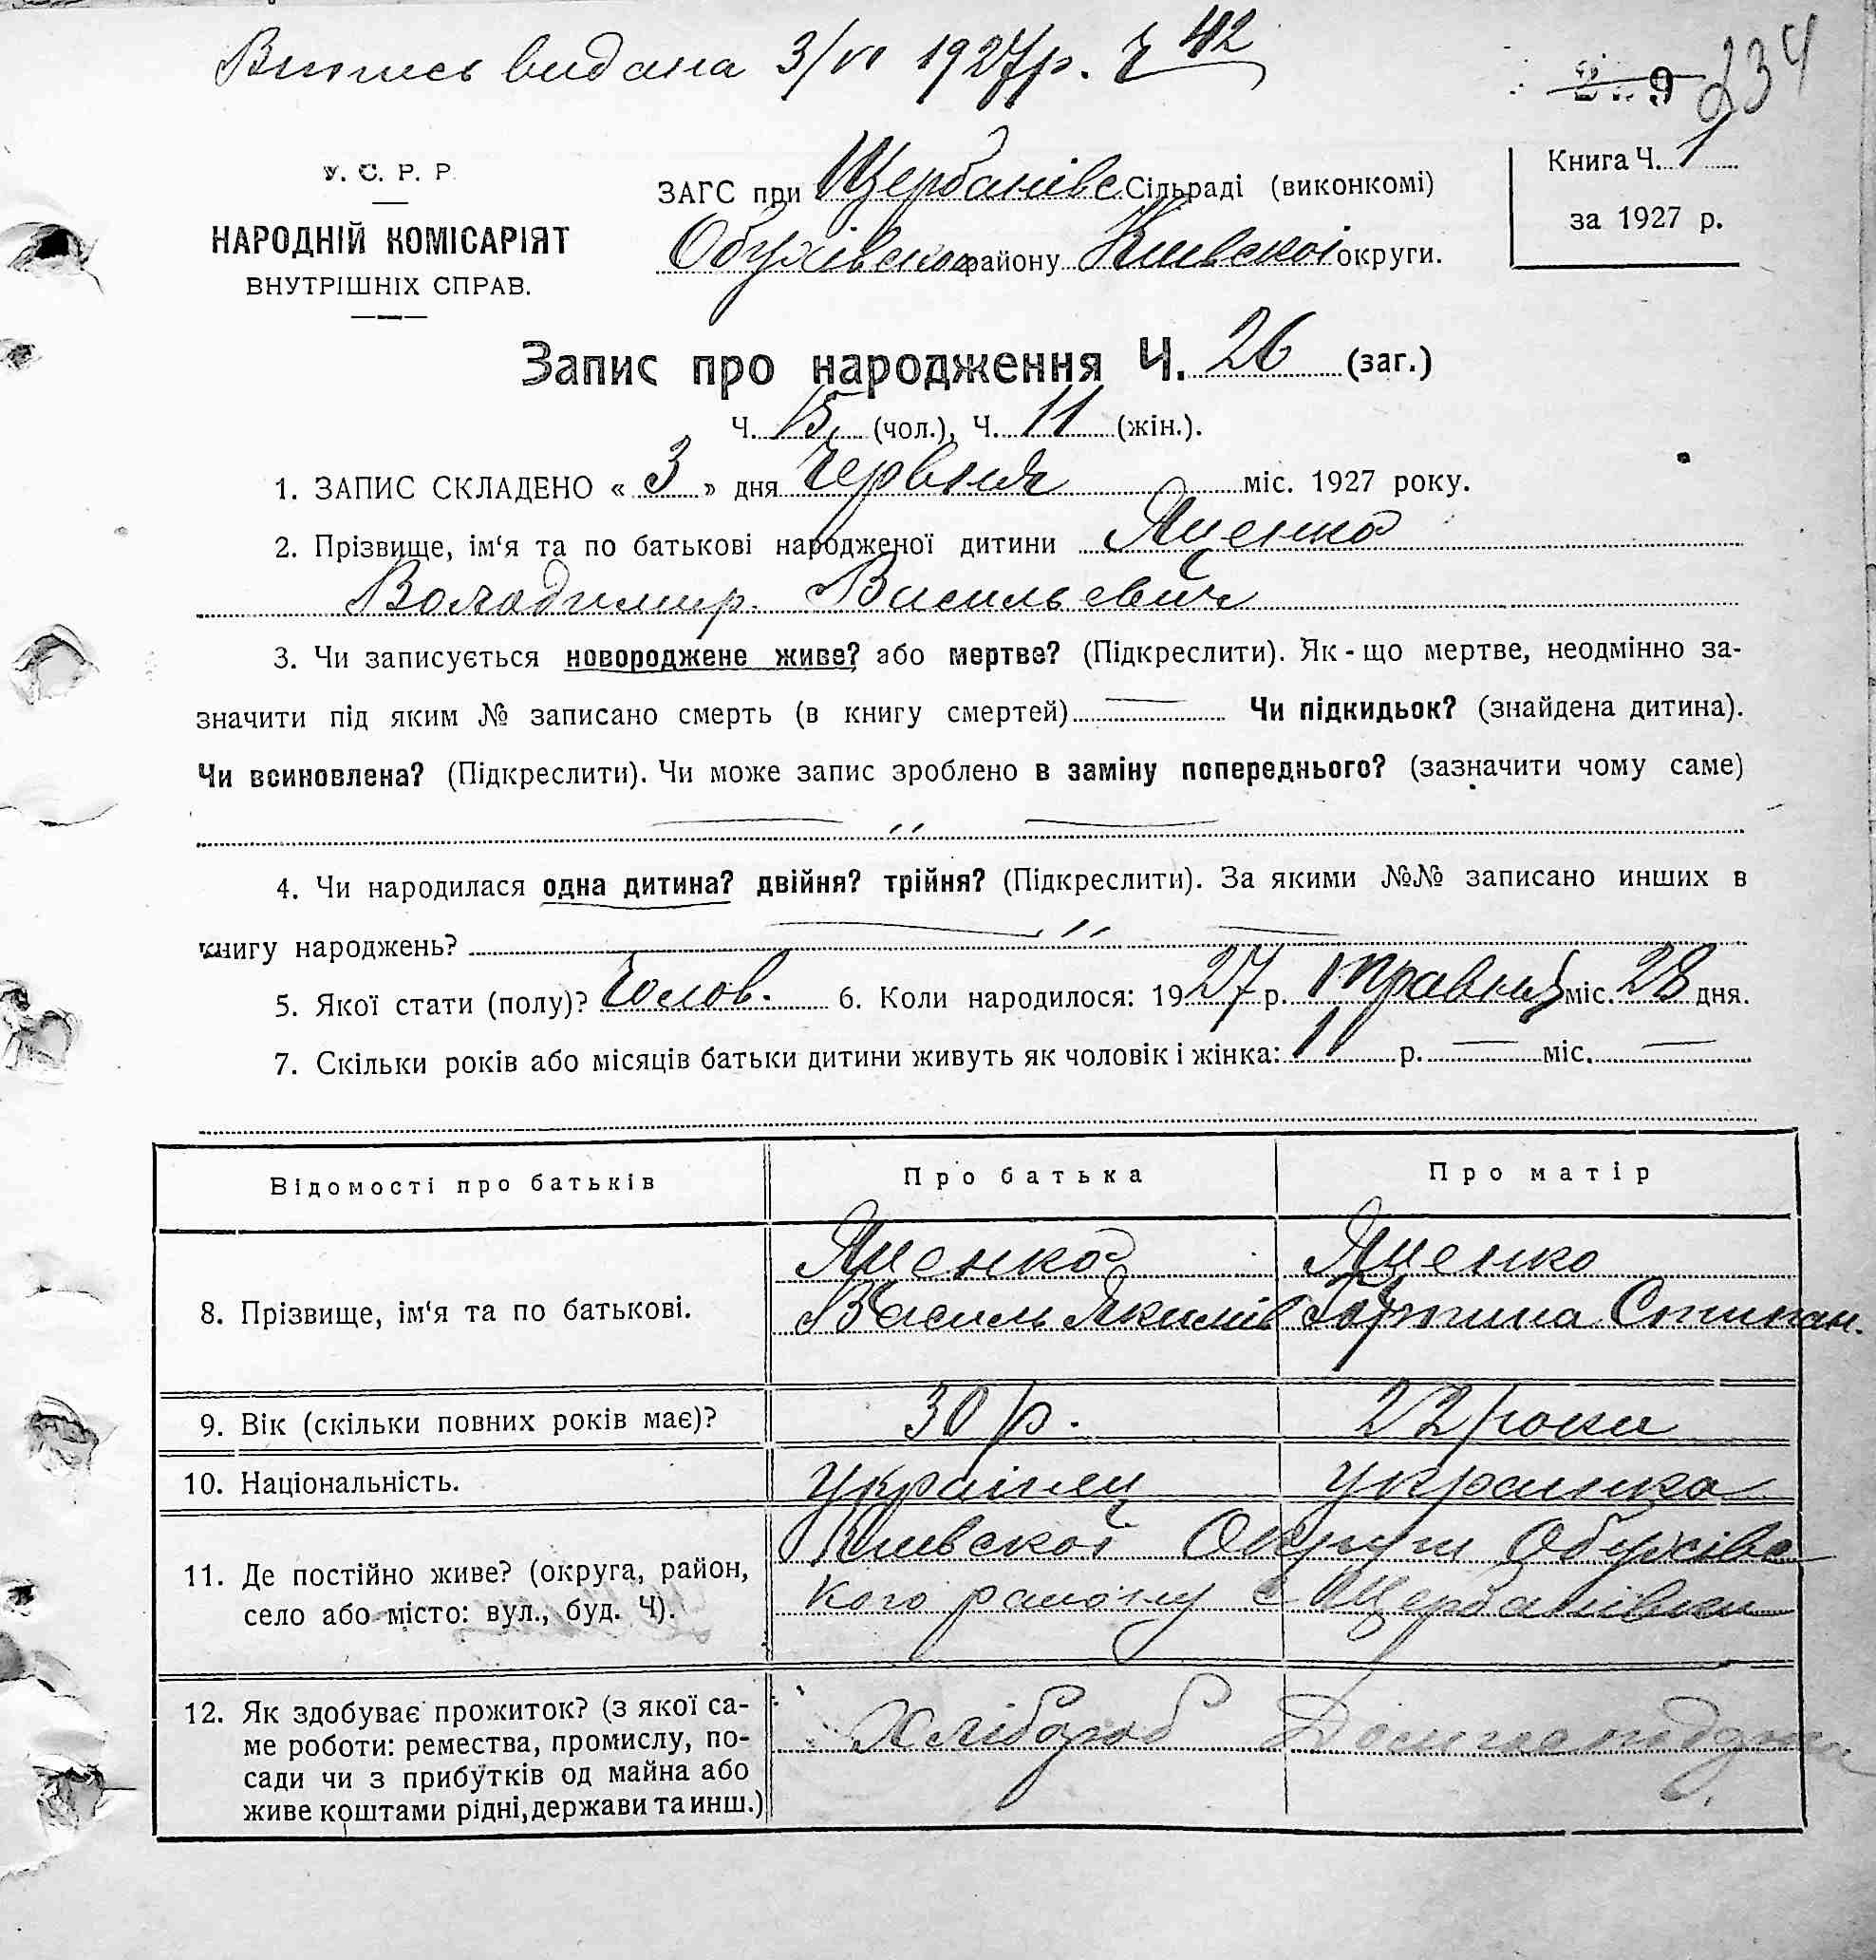 Выпись видана 3/VI 1927р. Ч 42
9 234
У. С. Р. Р.
НАРОДНІЙ КОМІСАРІЯТ
ВНУТРІШНІХ СПРАВ.
ЗАГС при Щербанівс Сільраді (виконкомі)
Обухівского району Киівскоі округи.
Книга Ч. 1
за 1927 р.
Запис про народження Ч. 26 (заг.)
Ч. 15 (чол.), Ч. 11 (жін.).
1. ЗАПИС СКЛАДЕНО « 3 » дня Червня міс. 1927 року.
2. Прізвище, ім‘я та по батькові народженої дитини Яценко
Володимир Васильевич
3. Чи записується новороджене живе? або мертве? (Підкреслити). Як-що мертве, неодмінно за-
значити під яким № записано смерть (в книгу смертей) — Чи підкидьок? (знайдена дитина).
Чи всиновлена? (Підкреслити). Чи може запис зроблено в заміну попереднього? (зазначити чому саме)
— ,, —
4. Чи народилася одна дитина? двійня? трійня? (Підкреслити). За якими №№ записано инших в
книгу народжень? — ,, —
5. Якої стати (полу)? Чолов. 6. Коли народилося: 1927 р. Травня міс. 28 дня.
7. Скільки років або місяців батьки дитини живуть як чоловік і жінка: 11 р. — міс. —
Відомості про батьків Про батька Про матір
8. Прізвище, ім‘я та по батькові. Яценко Яценко
Василь Якимів Стипан.
9. Вік (скільки повних років має)? 30 р. 22 роки
10. Національність. Украінец Украінка
11. Де постійно живе? (округа, район,
село або місто: вул., буд. Ч).
Киівскоі Округи Обухівс
кого району с Щербанівки
12. Як здобуває прожиток? (з якої са-
ме роботи: ремества, промислу, по-
сади чи з прибутків од майна або
живе коштами рідні, держави та инш.)
Хлібороб